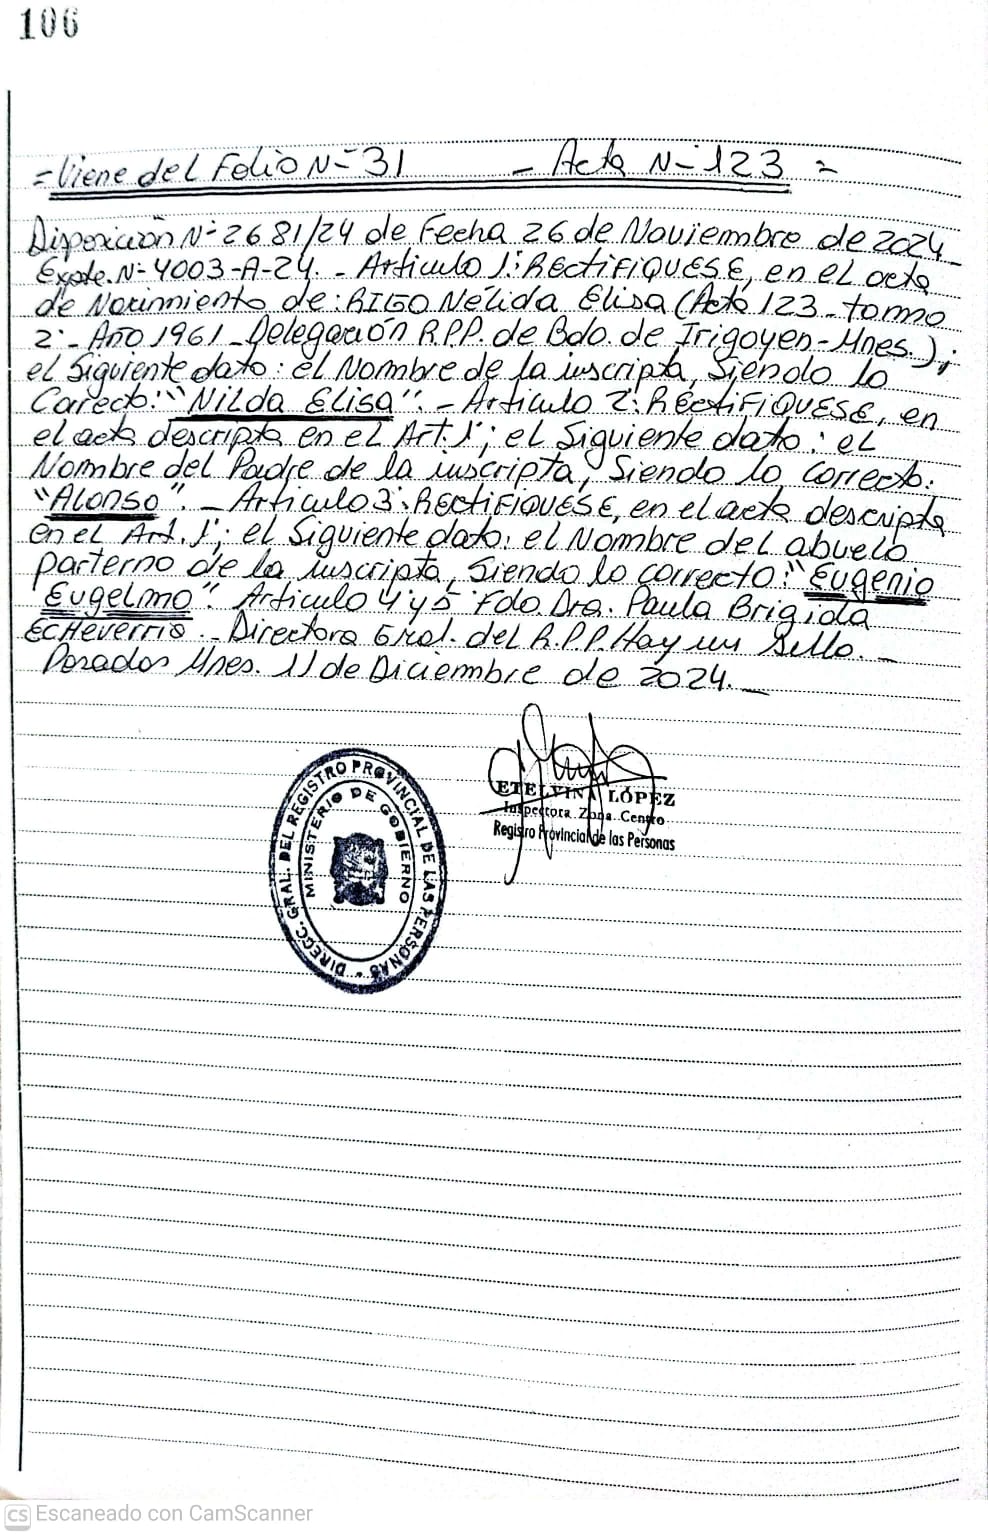 106
=Viene del Folio Nº 31 - Acta Nº 123 =
Disposición Nº 2681/24 de Fecha 26 de Noviembre de 2024_
Expte. Nº 4003-A-24. - Articulo 1º: RECTIFIQUESE, en el acta
de Nacimiento de: RIGO Nélida Elisa (Acta 123 - tomo
2º - Año 1961 - Delegación R.P.P. de Bdo. de Irigoyen - Mnes.);
el Siguiente dato: el Nombre de la inscripta, Siendo lo
Corecto: "NILDA ELISA". - Articulo 2º: RECTIFIQUESE, en
el acta descripta en el Art. 1º; el Siguiente dato: el
Nombre del Padre de la inscripta, Siendo lo correcto:
"ALONSO". - Articulo 3º: RECTIFIQUESE, en el acta descripta
en el Art. 1º; el Siguiente dato: el Nombre del abuelo
parterno de la inscripta, Siendo lo correcto: "Eugenio
Eugelmo". Articulo 4º y 5º Fdo. Dra. Paula Brigida
ECHEVERRIA. - Directora Gral. del R.P.P. Hay un Sello. _
Posadas Mnes. 11 de Diciembre de 2024. _
DIRECC. GRAL. DEL REGISTRO PROVINCIAL DE LAS PERSONAS
MINISTERIO DE GOBIERNO
ETELVINA LÓPEZ
Inspectora Zona Centro
Registro Provincial de las Personas
CS Escaneado con CamScanner